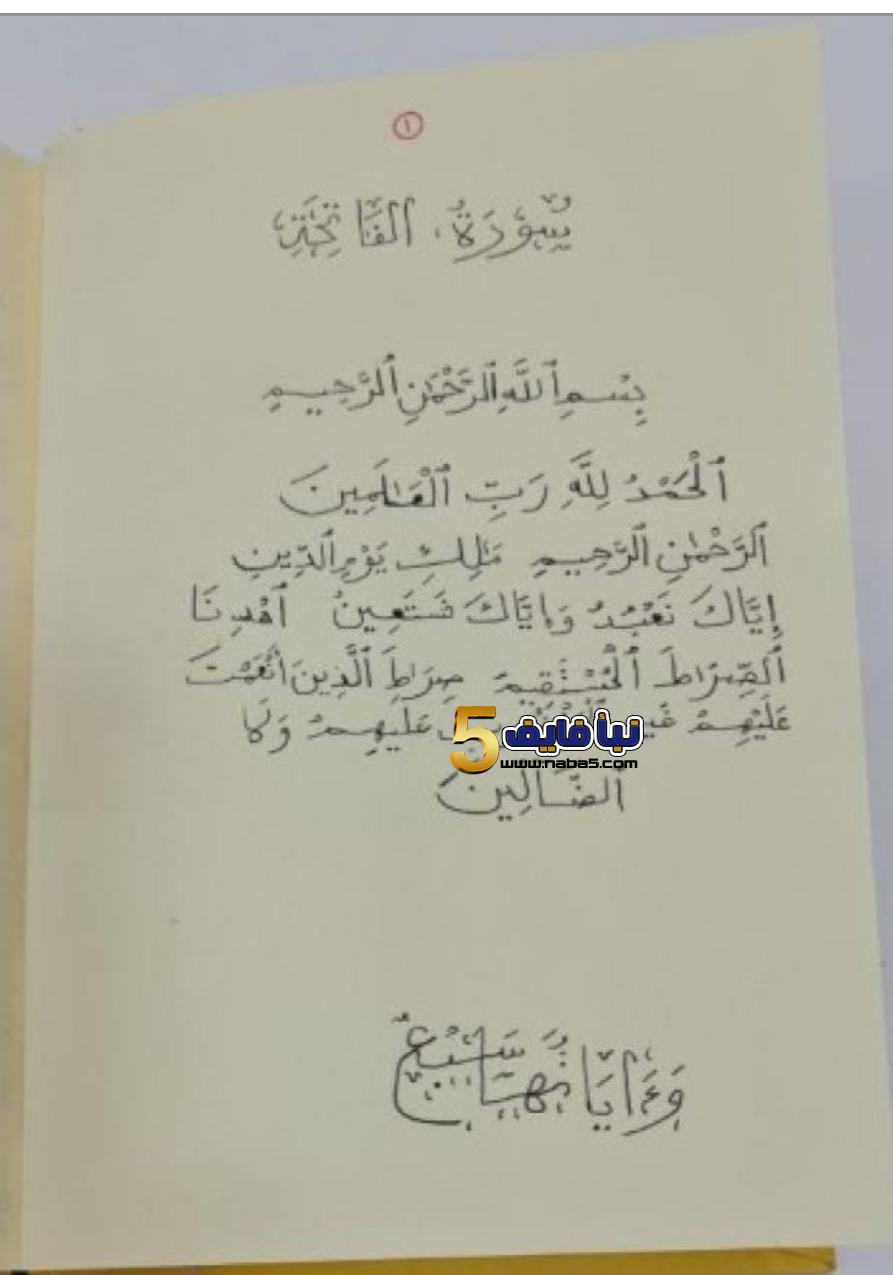 ١
سُورَةُ الفَاتِحَةِ
بِسْمِ ٱللَّهِ ٱلرَّحْمَٰنِ ٱلرَّحِيمِ
ٱلْحَمْدُ لِلَّهِ رَبِّ ٱلْعَٰلَمِينَ
ٱلرَّحْمَٰنِ ٱلرَّحِيمِ مَٰلِكِ يَوْمِ ٱلدِّينِ
إِيَّاكَ نَعْبُدُ وَإِيَّاكَ نَسْتَعِينُ ٱهْدِنَا
ٱلصِّرَاطَ ٱلْمُسْتَقِيمَ صِرَاطَ ٱلَّذِينَ أَنْعَمْتَ
عَلَيْهِمْ غَيْرِ عَلَيْهِمْ وَلَا
نبأ فايف 5
www.naba5.com
ٱلضَّالِّينَ
وَءَايَاتُهَا سَبْعٌ